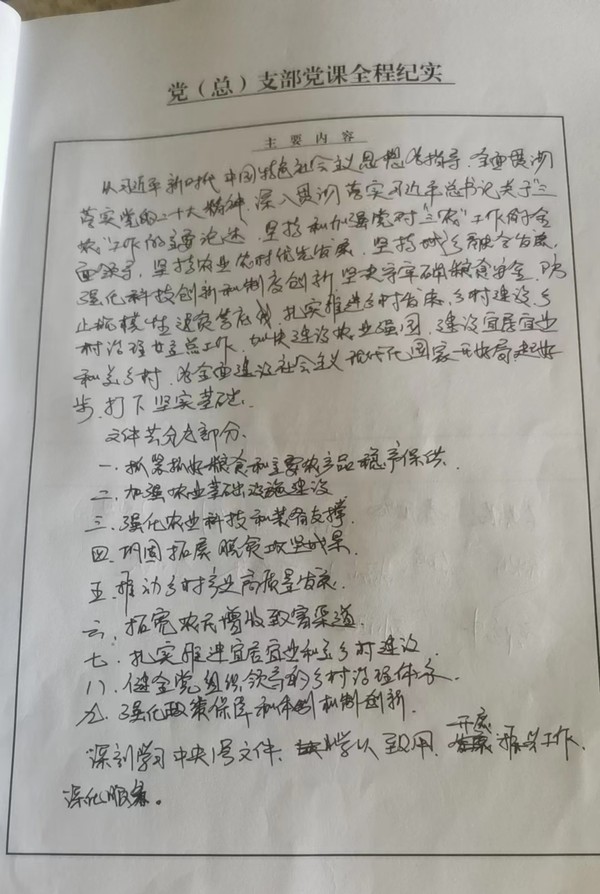 党（总）支部党课全程纪实
主要内容
以习近平新时代中国特色社会主义思想为指导，全面贯彻
落实党的二十大精神，深入贯彻落实习近平总书记关于“三
农”工作的重要论述，坚持和加强党对“三农”工作的全
面领导，坚持农业农村优先发展，坚持城乡融合发展，
强化科技创新和制度创新，坚决守牢确保粮食安全、防
止规模性返贫等底线，扎实推进乡村发展、乡村建设、乡
村治理等重点工作，加快建设农业强国，建设宜居宜业
和美乡村，为全面建设社会主义现代化国家开好局起好
步，打下坚实基础。
文件共分九部分。
一.抓紧抓好粮食和主要农产品稳产保供.
二.加强农业基础设施建设
三.强化农业科技和装备支撑.
四.巩固拓展脱贫攻坚成果.
五.推动乡村产业高质量发展.
六.拓宽农民增收致富渠道
七.扎实推进宜居宜业和美乡村建设
八.健全党组织领导的乡村治理体系
九.强化政策保障和体制机制创新.
深刻学习中央1号文件，学以致用，开展振兴工作，
深化服务。